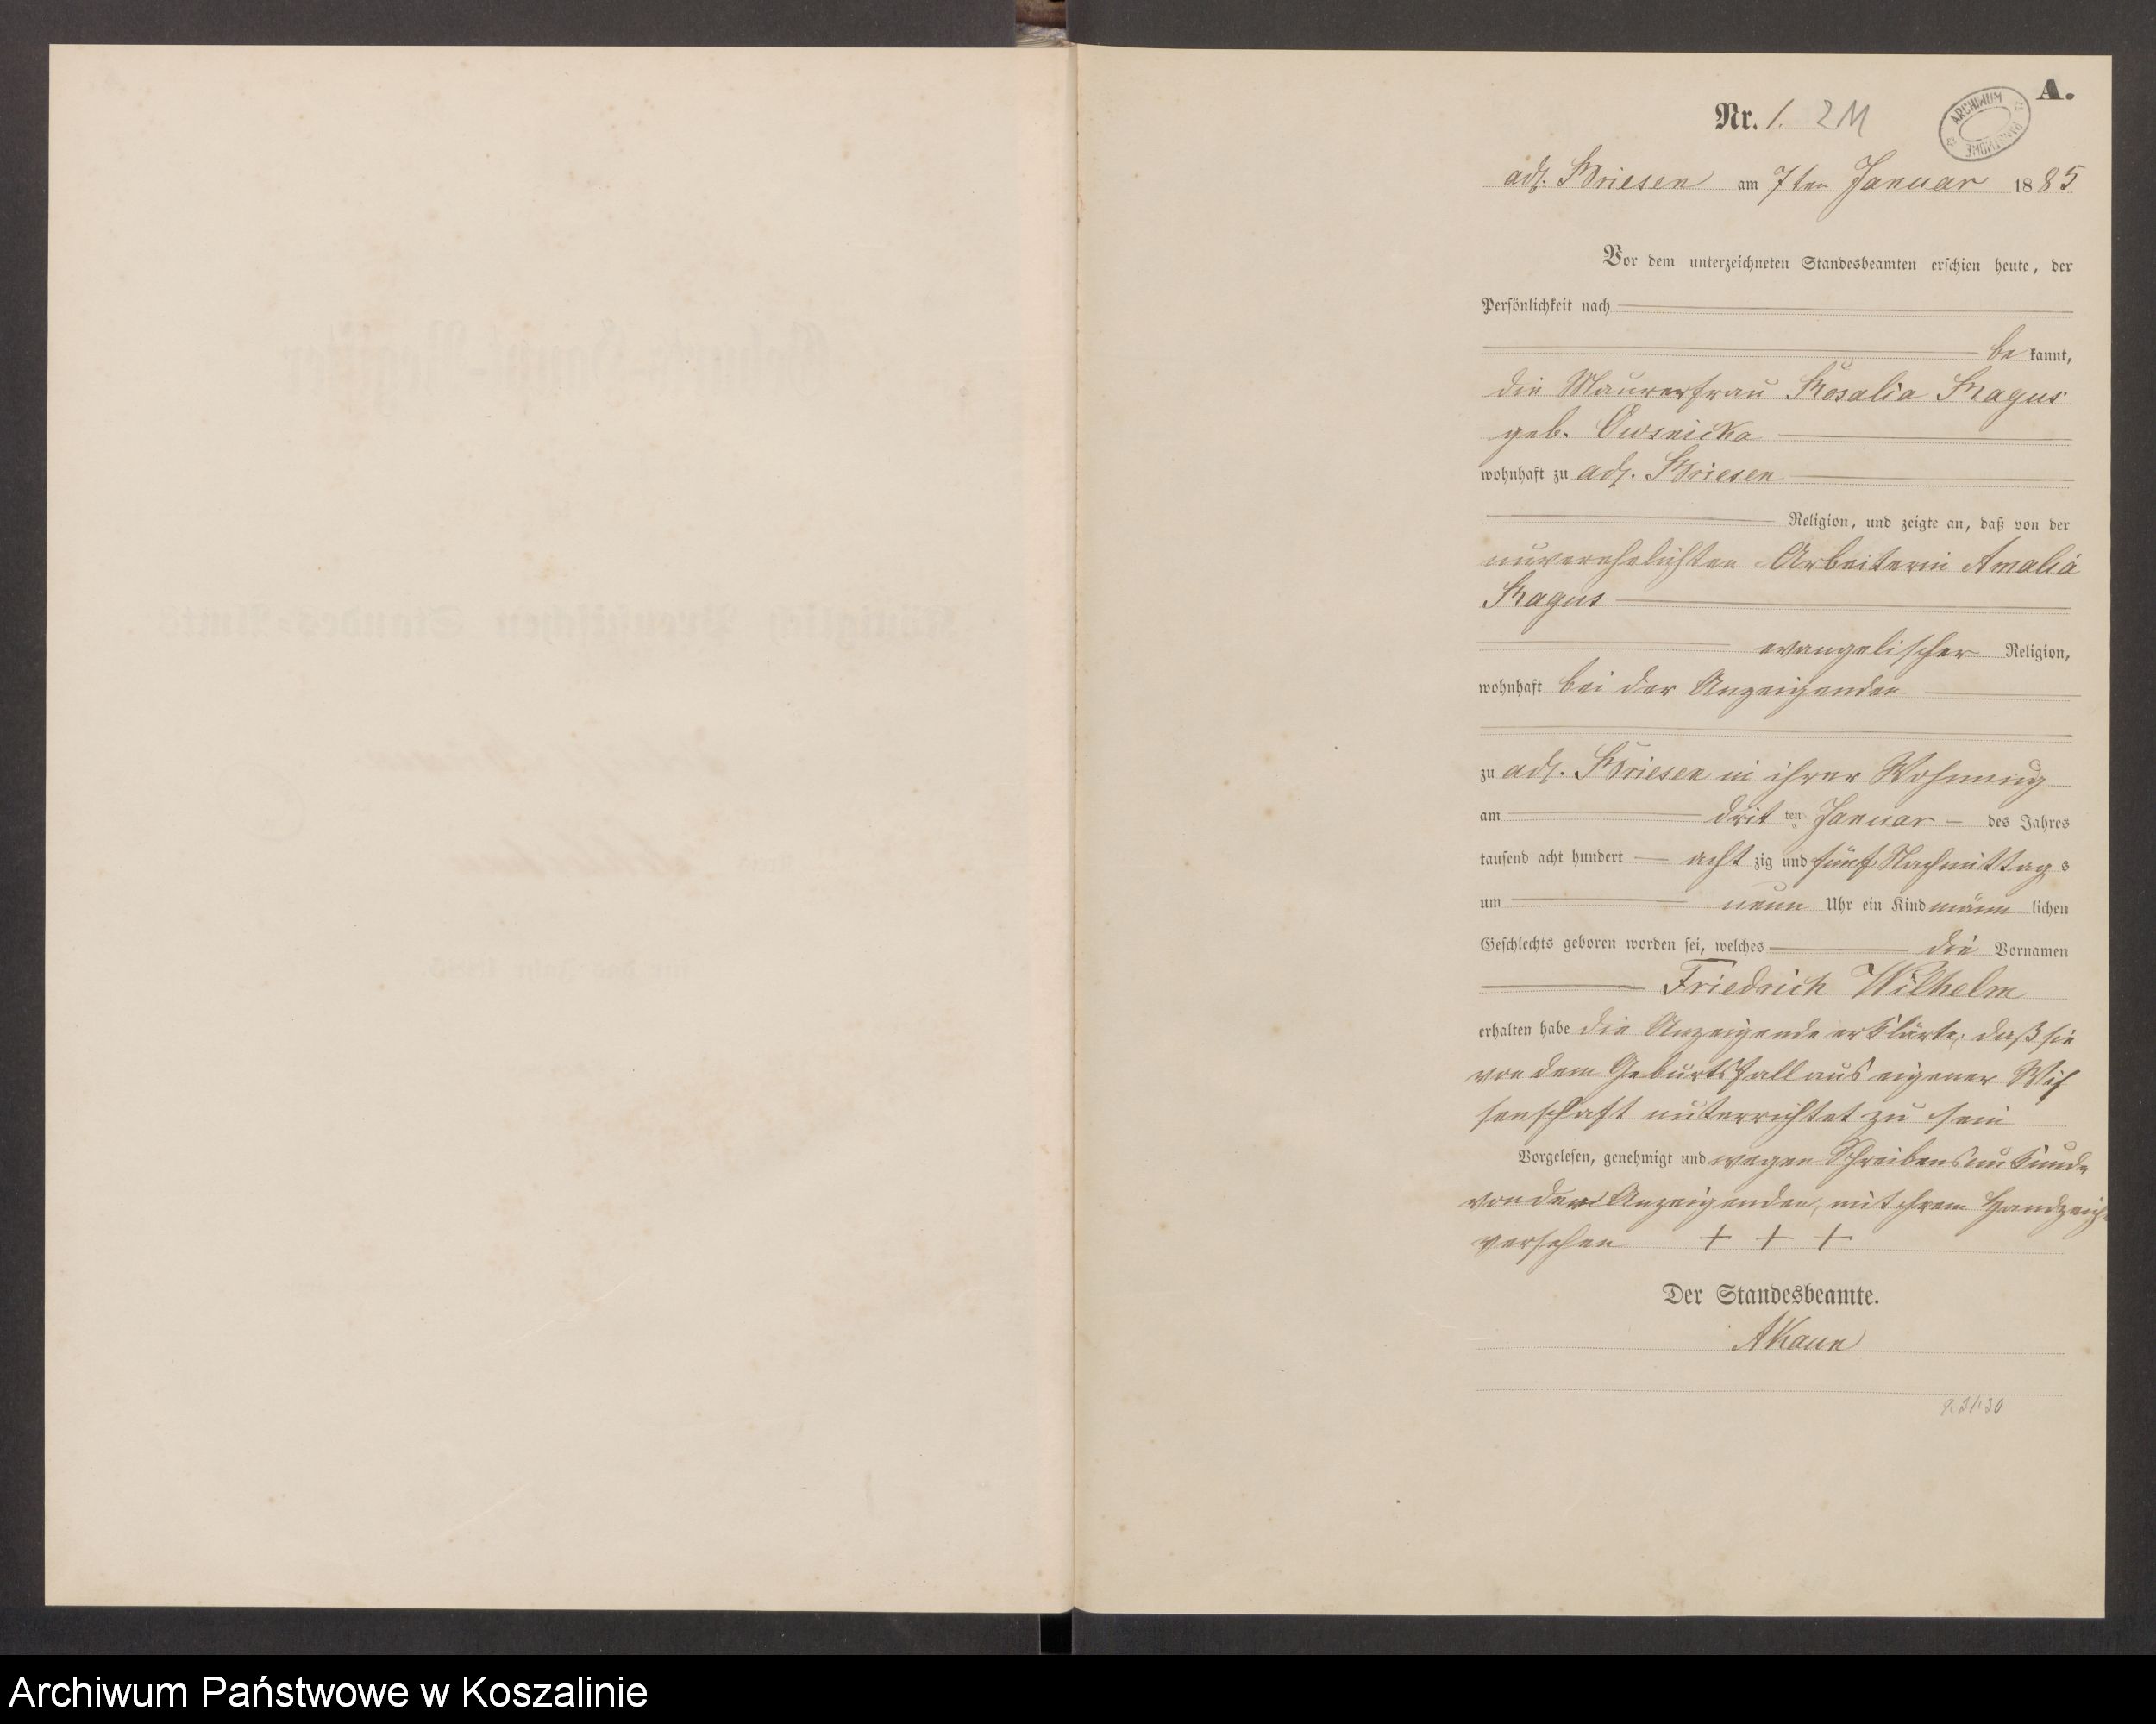 A.
Nr. 1. 2M
ARCHIWUM PAŃSTWOWE
adl. Briesen am 7ten Januar 1885
Vor dem unterzeichneten Standesbeamten erschien heute, der
Persönlichkeit nach
be kannt,
die Maurerfrau Rosalia Ragus
geb. Owsnicka
wohnhaft zu adl. Briesen
Religion, und zeigte an, daß von der
unverehelichten Arbeiterin Amalia
Ragus
evangelischer Religion,
wohnhaft bei der Anzeigenden
zu adl. Briesen in ihrer Wohnung
am drit ten Januar des Jahres
tausend acht hundert acht zig und fünf Nachmittag s
um neun Uhr ein Kind männ lichen
Geschlechts geboren worden sei, welches die Vornamen
Friedrich Wilhelm
erhalten habe die Anzeigende erklärte, daß sie
von dem Geburtsfall aus eigener Wis
senschaft unterrichtet zu sein
Vorgelesen, genehmigt und wegen Schreibensunkunde
von der Anzeigenden, mit ihrem Handzeich
versehen + + +
Der Standesbeamte.
AKaun
Archiwum Państwowe w Koszalinie